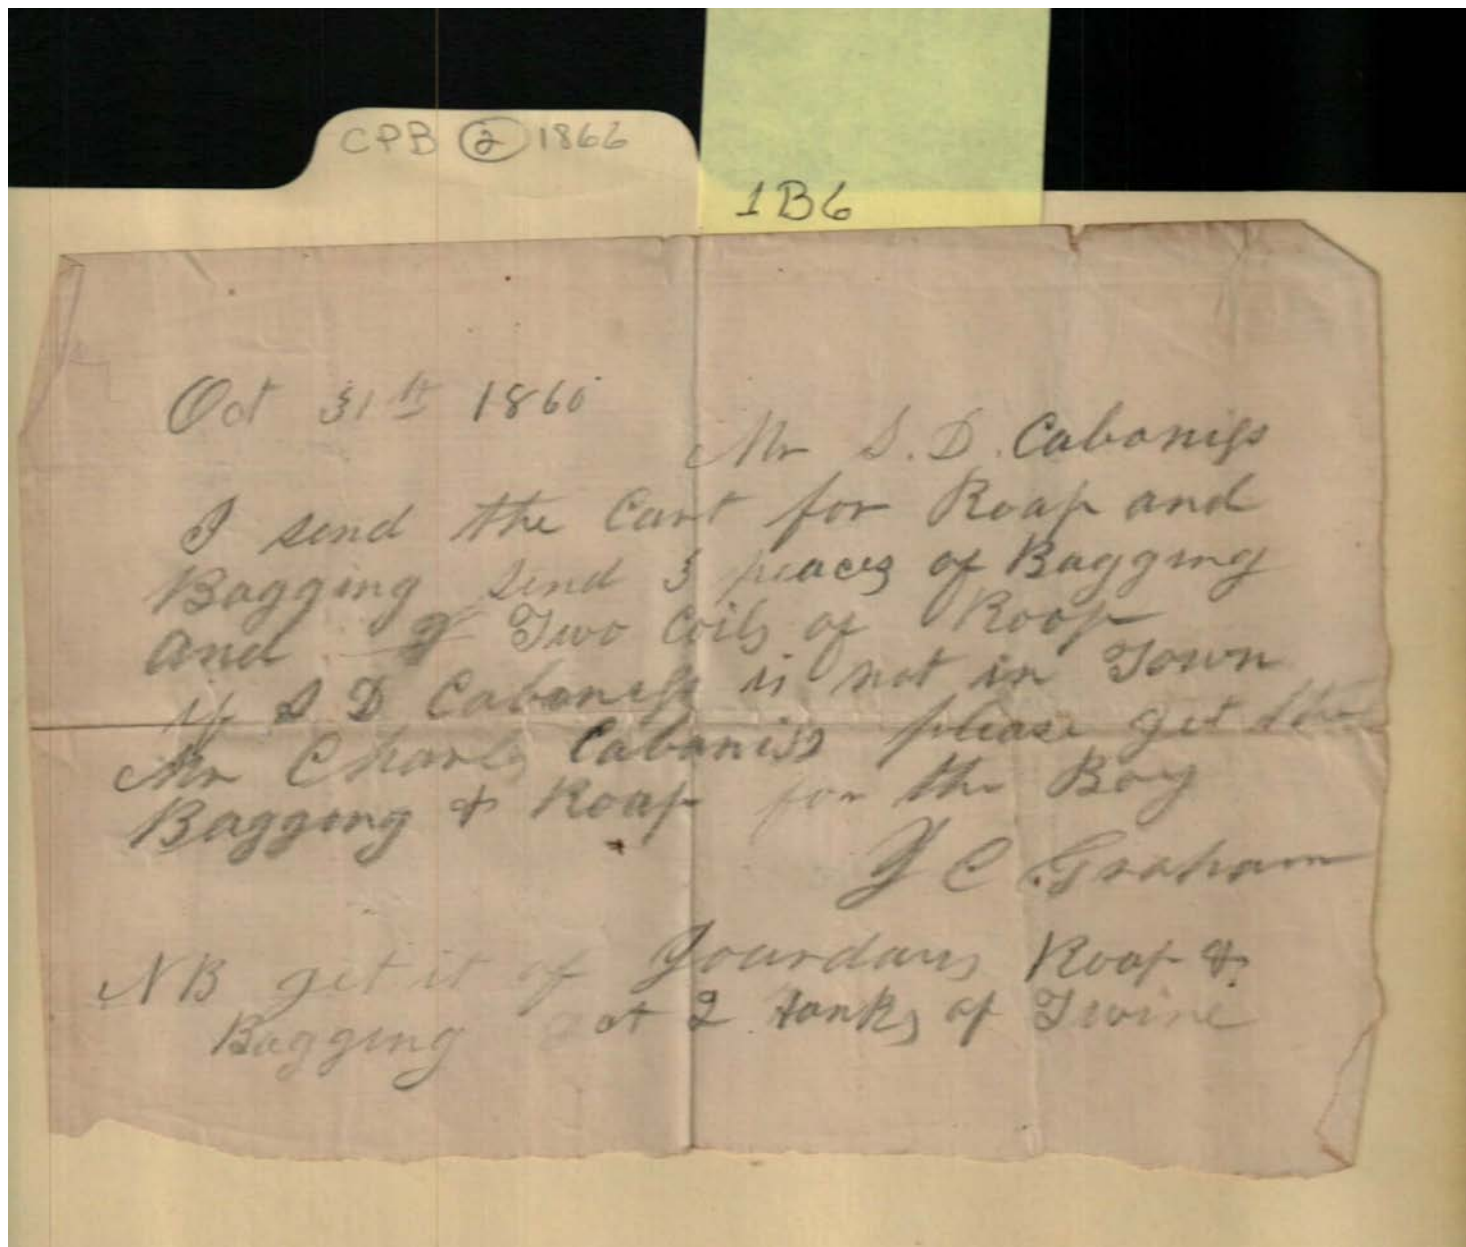 CPB 2 1866
1B6
Oct 31th 1866
Mr S. D. Cabaniss
I send the Cart for Roap and
Bagging send 3 peaces of Bagging
and Two Coils of Roop
if S D Cabaniss is not in Town
Mr Charls Cabaniss please get the
Bagging & Roap for the Boy
J C Graham
NB get it of Jourdans Roap &
Bagging 2 hanks of Twine